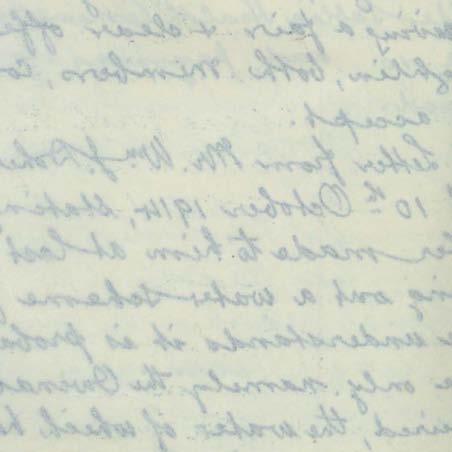 a fair & clear offe
both Members, co
accept.
Letter from Mr. Wm. J. Dohe
10th October 1914, statin
made to him at last
out a water scheme
understands it is proba
only, namely the
the water of which